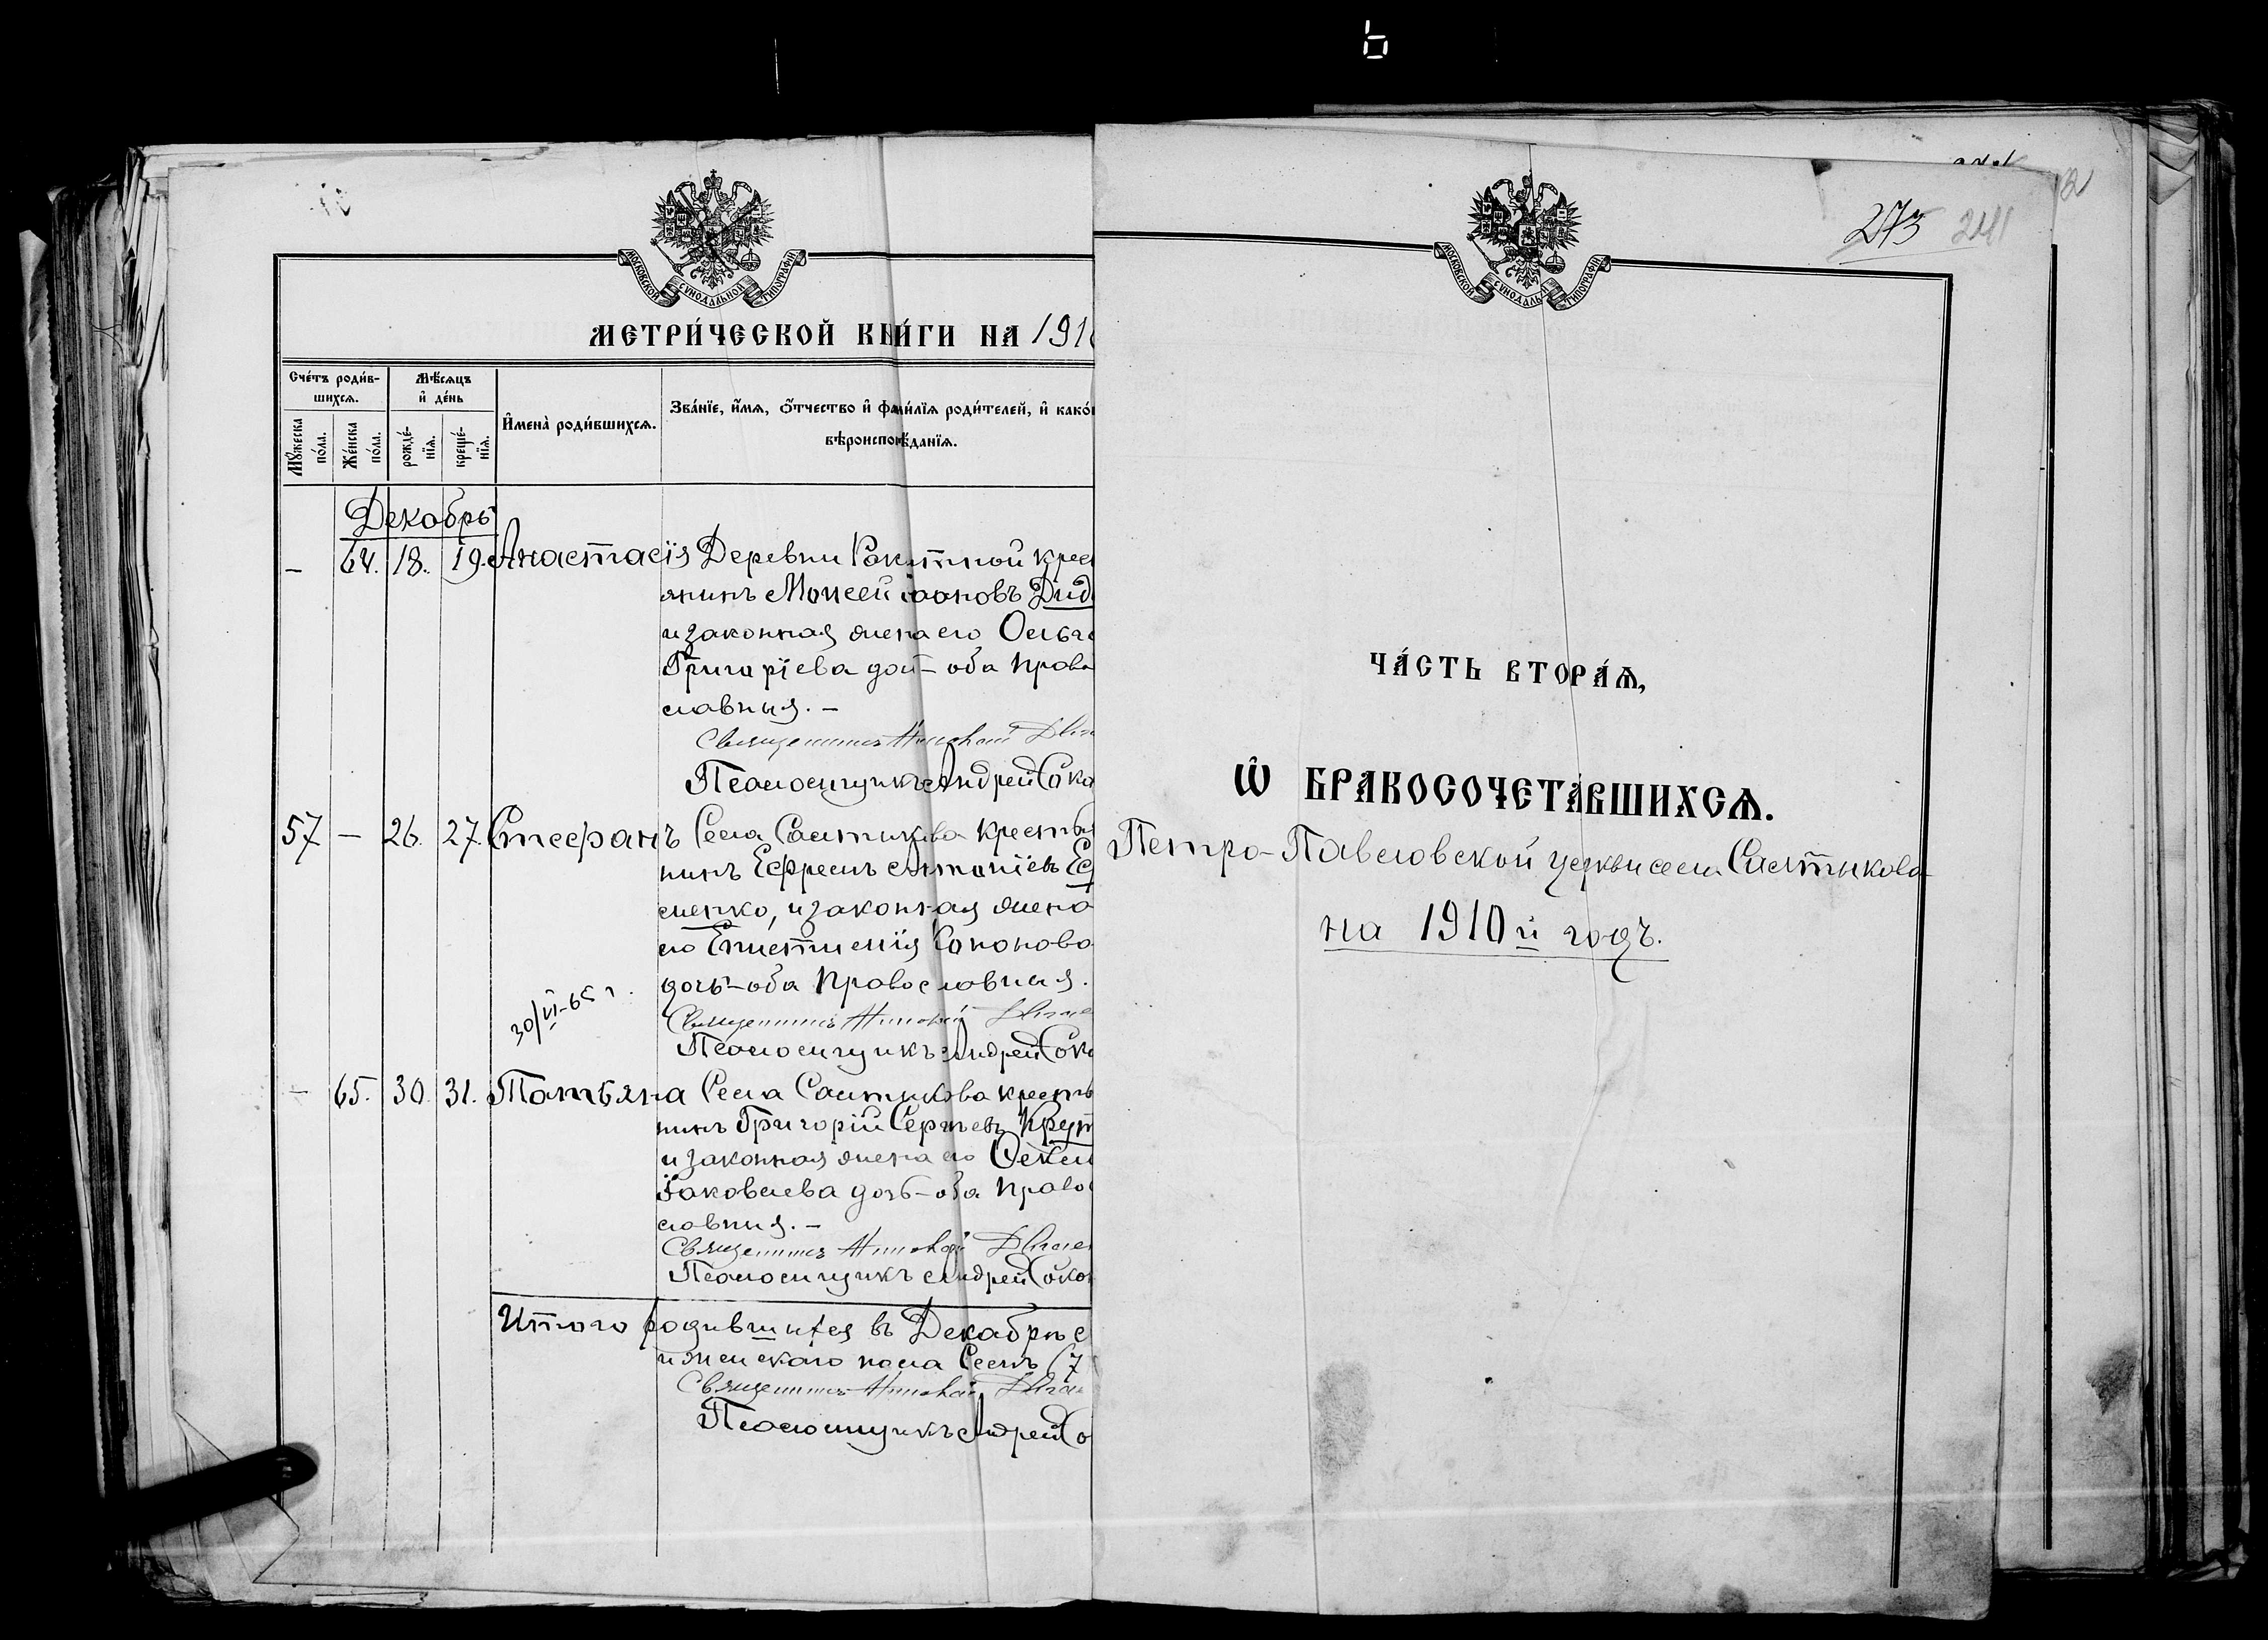 МОСКОВСКОЙ СѴНОДАЛЬНОЙ ТИПОГРАФІИ
МЕТРИ́ЧЕСКОЙ КНИ́ГИ НА 191
Сче́тъ роди́в-
шихсѧ.
Мꙋ́жеска
по́ла.
Же́нска
по́ла.
Мѣ́сѧцъ
и҆ де́нь
рожде́-
нїѧ.
креще́-
нїѧ.
И҆мена̀ роди́вшихсѧ.
Зва́нїе, и҆́мѧ, ѻ҆́тчество и҆ фами́лїѧ роди́телей, и҆ како́
вѣроисповѣ́данїѧ.
Декабрь
– 64. 18. 19. Анастасія Деревни Ракитной крес
янинъ Моисей Іоановъ Дид
и законная жена его Ольга
Григоріева доч – оба Право
славныя. –
Священникъ Николай
Псаломщикъ Андрей Соко
57 – 26. 27. Стефанъ Села Салтыкова крестья
нинъ Ефремъ Антоніевъ Еф
менко, и законная жена
его Епистимія Кононова
дочь – оба Православныя.
Священникъ Николай
Псаломщикъ Андрей Соко
30/VI-65 г.
– 65. 30. 31. Татьяна Села Салтыкова кресть
нинъ Григорій Сергѣевъ Крут
и законная жена его Ѳекла
Іаковлева дочь – оба Право
славныя. –
Священникъ Николай
Псаломщикъ Андрей Соко
Итого родившихся въ Декабрѣ
и женскаго пола Семь (7
Священникъ Николай
Псаломщикъ Андрей Со
273 241
МОСКОВСКОЙ СѴНОДАЛЬ ТИПОГРАФІИ
ЧА́СТЬ ВТОРА́Ѧ,
Ѡ҆ БРАКОСОЧЕТА́ВШИХСѦ.
Петро-Павловской церкви села Салтыкова
на 1910й годъ.